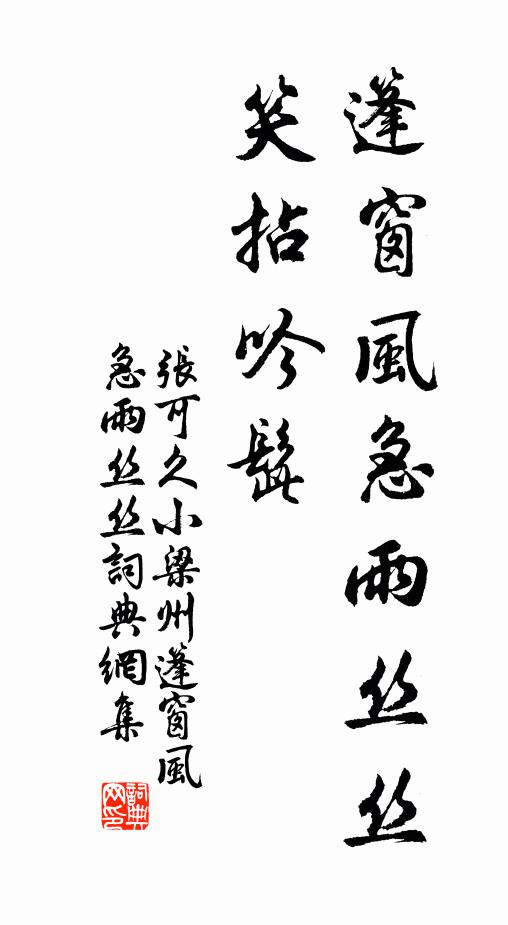 蓬窗風急雨丝丝
笑拈吟髭
張可久小梁州蓬窗風
急雨丝丝詞典網集
詞典网印